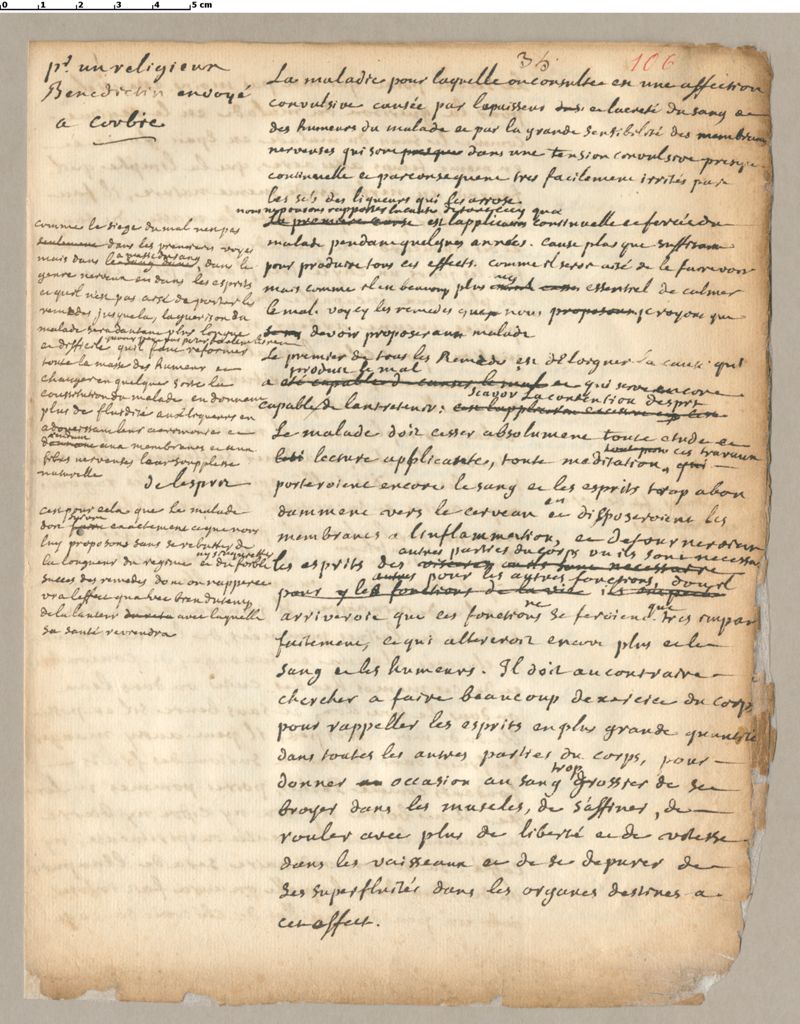 0 1 2 3 4 5 cm
36
106
pr un religieux
Benedictin envoyé
a corbie
La maladie pour laquelle on consulte est une affection
convulsive causée par lepaisseur et lacreté du sang et
des humeurs du malade et par la grande sensibilité des membranes
nerveuses qui sont presque dans une tension convulsive presque
continuelle et par consequent tres facilement irrités par
les sels des liqueurs qui les arrose
nous ne pouvons rapporter la cause
La premiere cause est lapplication continuelle et forcée du
malade pendant quelques années. cause plus que suffisante
pour produire tous ces effets. comme il seroit aisé de le faire voir
mais comme il en beaucoup plus essentiel de calmer
le mal. voycy les remedes que nous proposons je croyons que
devoir proposer au malade
Le premier de tous les Remedes est deloigner la cause qui
produit le mal
a été capable de causer le mal et qui seroit encore
scavoir la contention desprit
capable de lentretenir:
Le malade doit cesser absolument toute etude et
tous ces travaux
lecture applicante, toute meditation, qui
porteroient encore le sang et les esprits trop abon
damment vers le cerveau et en disposeroient les
membranes a linflammation, et detourneroient
autres parties du corps ou ils sont necessaires
les esprits des
autres pour les autres fonctions, doù il
pour y les fonctions de la vie
arriveroit que ces fonctions ne se feroient que tres impar
faitement, ce qui altereroit encore plus et le
sang et les humeurs. Il doit au contraire
chercher a faire beaucoup dexercice du corps
pour rappeller les esprits en plus grande quantité
dans toutes les autres parties du corps, pour
donner occasion au sang trop grossier de se
broyer dans les muscles, de saffiner, de
rouler avec plus de liberté et de vitesse
dans les vaisseaux et de se depurer de
ses superfluités dans les organes destinés a
cet effect.
comme le siege du mal nest pas
seulement dans les premieres voyes
mais dans la masse du sang dans le
genre nerveux et dans les esprits
et quil nest pas aisé de porter les
remedes jusquela, la guerison du
malade sera dautant plus longue
et difficile quil faut reformer
toute la masse des humeurs et
changer en quelque sorte la
constitution du malade en donnant
plus de fluidité aux liqueurs en
adoucissant leur acrimonie et
aux membranes et aux
fibres nerveuses leur souplesse
naturelle
de lesprit
cest pour cela que le malade
doit suivre exactement ce que nous
luy proposons sans se rebutter de
la longueur du regime et du foible
succes des remedes dont on rapporte
vra leffect qu avec bien du temp
de la lenteur avec laquelle
sa santé reviendra